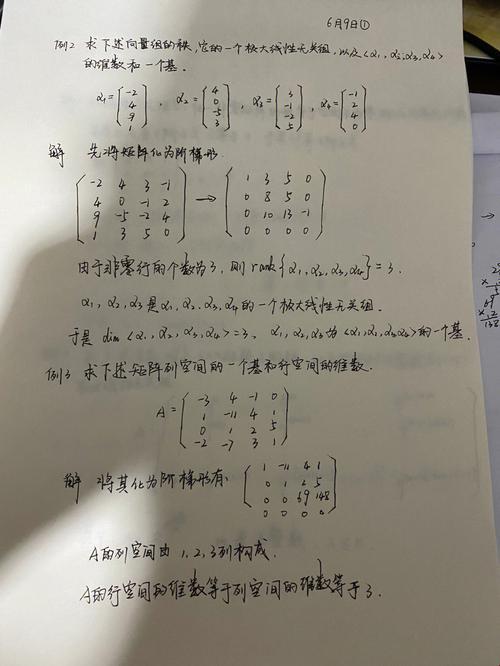 6月9日①
例2 求下述向量组的秩,它的一个极大线性无关组,以及<α₁,α₂,α₃,α₄>
的维数和一个基.
α₁=(-2 4 9 1), α₂=(4 0 -5 3), α₃=(3 -1 -2 5), α₄=(-1 2 4 0)
解 先将矩阵化为阶梯形.
-2 4 3 -1 → 1 3 5 0
4 0 -1 2 0 8 5 0
9 -5 -2 4 0 10 13 -1
1 3 5 0 0 0 0 0
由于非零行的个数为3, 则 rank{α₁,α₂,α₃,α₄}=3.
α₁,α₂,α₃是α₁,α₂,α₃,α₄的一个极大线性无关组.
于是 dim<α₁,α₂,α₃,α₄>=3, α₁,α₂,α₃为<α₁,α₂,α₃,α₄>的一个基.
例3 求下述矩阵列空间的一个基和行空间的维数.
A=
-3 4 -1 0
1 -11 4 1
0 1 2 5
-2 -7 3 1
解 将其化为阶梯形有
1 -11 4 1
0 1 2 5
0 0 69 148
0 0 0 0
A的列空间由1,2,3列构成.
A的行空间的维数等于列空间的维数等于3.